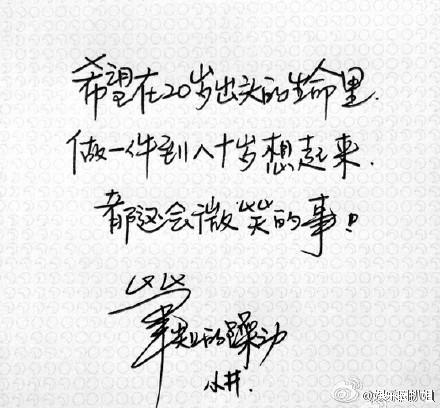 希望在20岁出头的生命里.
做一件到八十岁想起来.
都还会微笑的事！
笔尖的躁动
小井.